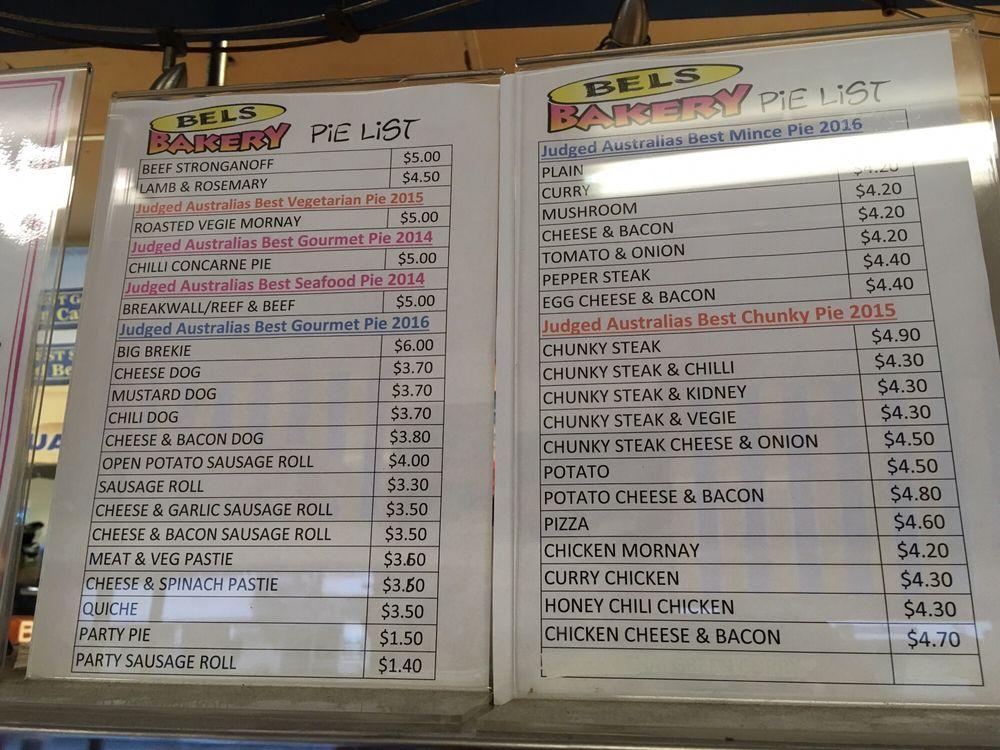 BELS
BAKERY PiE LiST
BEEF STRONGANOFF $5.00
LAMB & ROSEMARY $4.50
Judged Australias Best Vegetarian Pie 2015
ROASTED VEGIE MORNAY $5.00
Judged Australias Best Gourmet Pie 2014
CHILLI CONCARNE PIE $5.00
Judged Australias Best Seafood Pie 2014
BREAKWALL/REEF & BEEF $5.00
Judged Australias Best Gourmet Pie 2016
BIG BREKIE $6.00
CHEESE DOG $3.70
MUSTARD DOG $3.70
CHILI DOG $3.70
CHEESE & BACON DOG $3.80
OPEN POTATO SAUSAGE ROLL $4.00
SAUSAGE ROLL $3.30
CHEESE & GARLIC SAUSAGE ROLL $3.50
CHEESE & BACON SAUSAGE ROLL $3.50
MEAT & VEG PASTIE $3.60
CHEESE & SPINACH PASTIE $3.60
QUICHE $3.50
PARTY PIE $1.50
PARTY SAUSAGE ROLL $1.40
BELS
BAKERY PiE LiST
Judged Australias Best Mince Pie 2016
PLAIN
CURRY $4.20
MUSHROOM $4.20
CHEESE & BACON $4.20
TOMATO & ONION $4.20
PEPPER STEAK $4.40
EGG CHEESE & BACON $4.40
Judged Australias Best Chunky Pie 2015
CHUNKY STEAK $4.90
CHUNKY STEAK & CHILLI $4.30
CHUNKY STEAK & KIDNEY $4.30
CHUNKY STEAK & VEGIE $4.30
CHUNKY STEAK CHEESE & ONION $4.50
POTATO $4.50
POTATO CHEESE & BACON $4.80
PIZZA $4.60
CHICKEN MORNAY $4.20
CURRY CHICKEN $4.30
HONEY CHILI CHICKEN $4.30
CHICKEN CHEESE & BACON $4.70